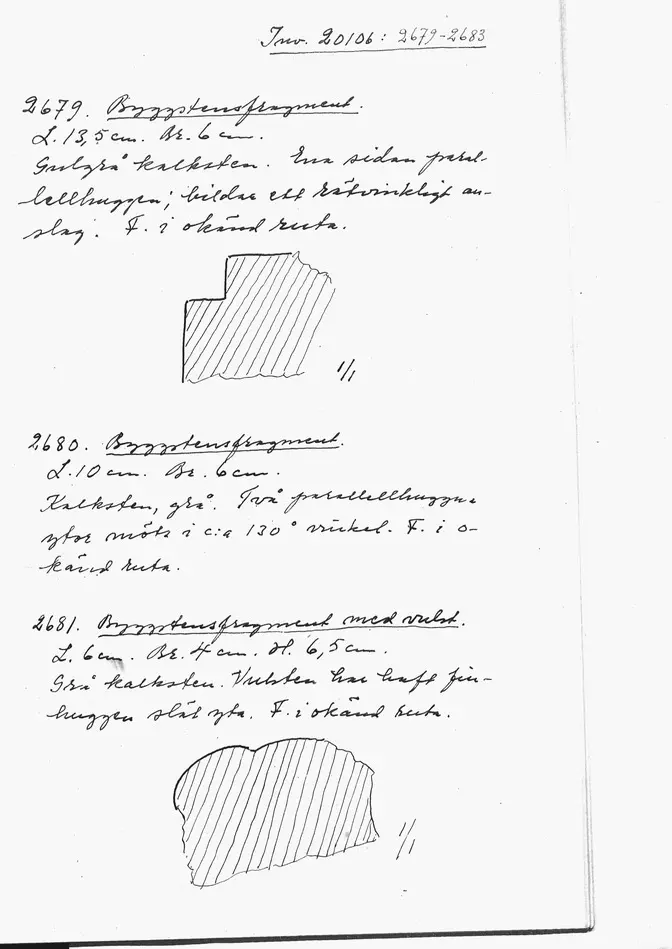 Inv. 20106: 2679-2683
2679. Byggstensfragment.
L. 13,5 cm. Br. 6 cm.
Gulgrå kalksten. Ena sidan paral-
lellhuggen; bildar ett rätvinkligt an-
slag. F. i okänd ruta.
1/1
2680. Byggstensfragment.
L. 10 cm. Br. 6 cm.
Kalksten, grå. Två parallellhuggna
ytor möts i c:a 130° vinkel. F. i o-
känd ruta.
2681. Byggstensfragment med vulst.
L. 6 cm. Br. 4 cm. H. 6,5 cm.
Grå kalksten. Vulsten har haft fin-
huggen slät yta. F. i okänd ruta.
1/1